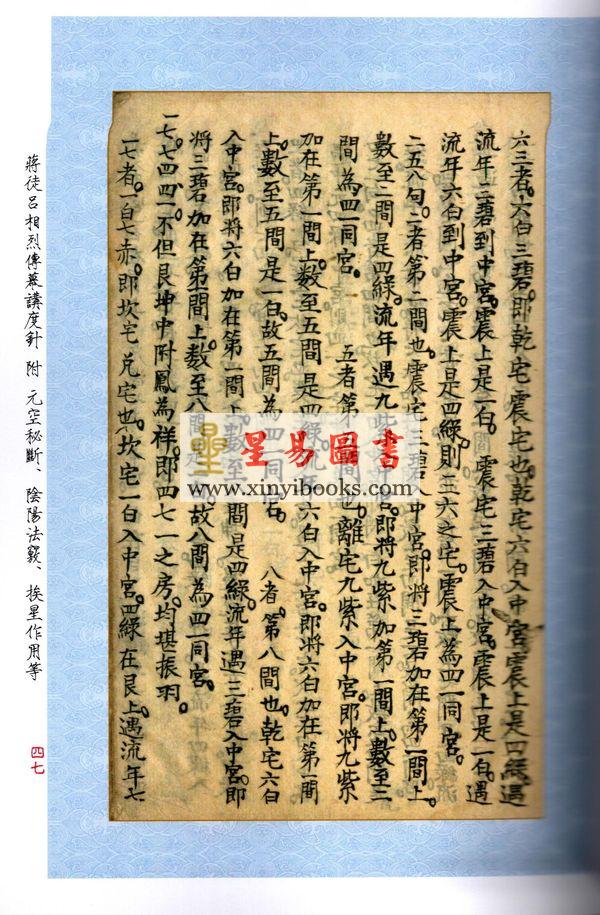 六三者。六白三碧。即乾宅震宅也。乾宅六白入中宮。震上是四綠。遇
流年三碧到中宮。震上是一白。震宅三碧入中宮。震上是一白。遇
流年六白到中宮。震上是四綠。則三六之宅。震上為四一同宮。
二五八句。二者。第二間也。震宅三碧入中宮。即將三碧加在第一間上。
數至二間是四綠。流年遇九紫入中宮。即將九紫加第一間上。數至二
間為四一同宮。 五者第五間也。離宅九紫入中宮。即將九紫
加在第一間上。數至五間是四綠。流年六白入中宮。即將六白加在第一間
上。數至五間是一白。故五間為四一同宮。 八者。第八間也。乾宅六白
入中宮。即將六白加在第一間上。數至間是四綠。流年遇三碧入中宮。即
將三碧加在第一間上。數至八間故八間為四一同宮。
一七。七四。四一。不但艮坤中附鳳為祥。即四七一之房。均堪振羽。
一七者。一白七赤。即坎宅兌宅也。坎宅一白入中宮。四綠在艮上。遇流年七
蔣徒呂相烈傳幕講度針 附 元空秘斷、陰陽法竅、挨星作用等
四七
星易圖書
www.xinyibooks.com